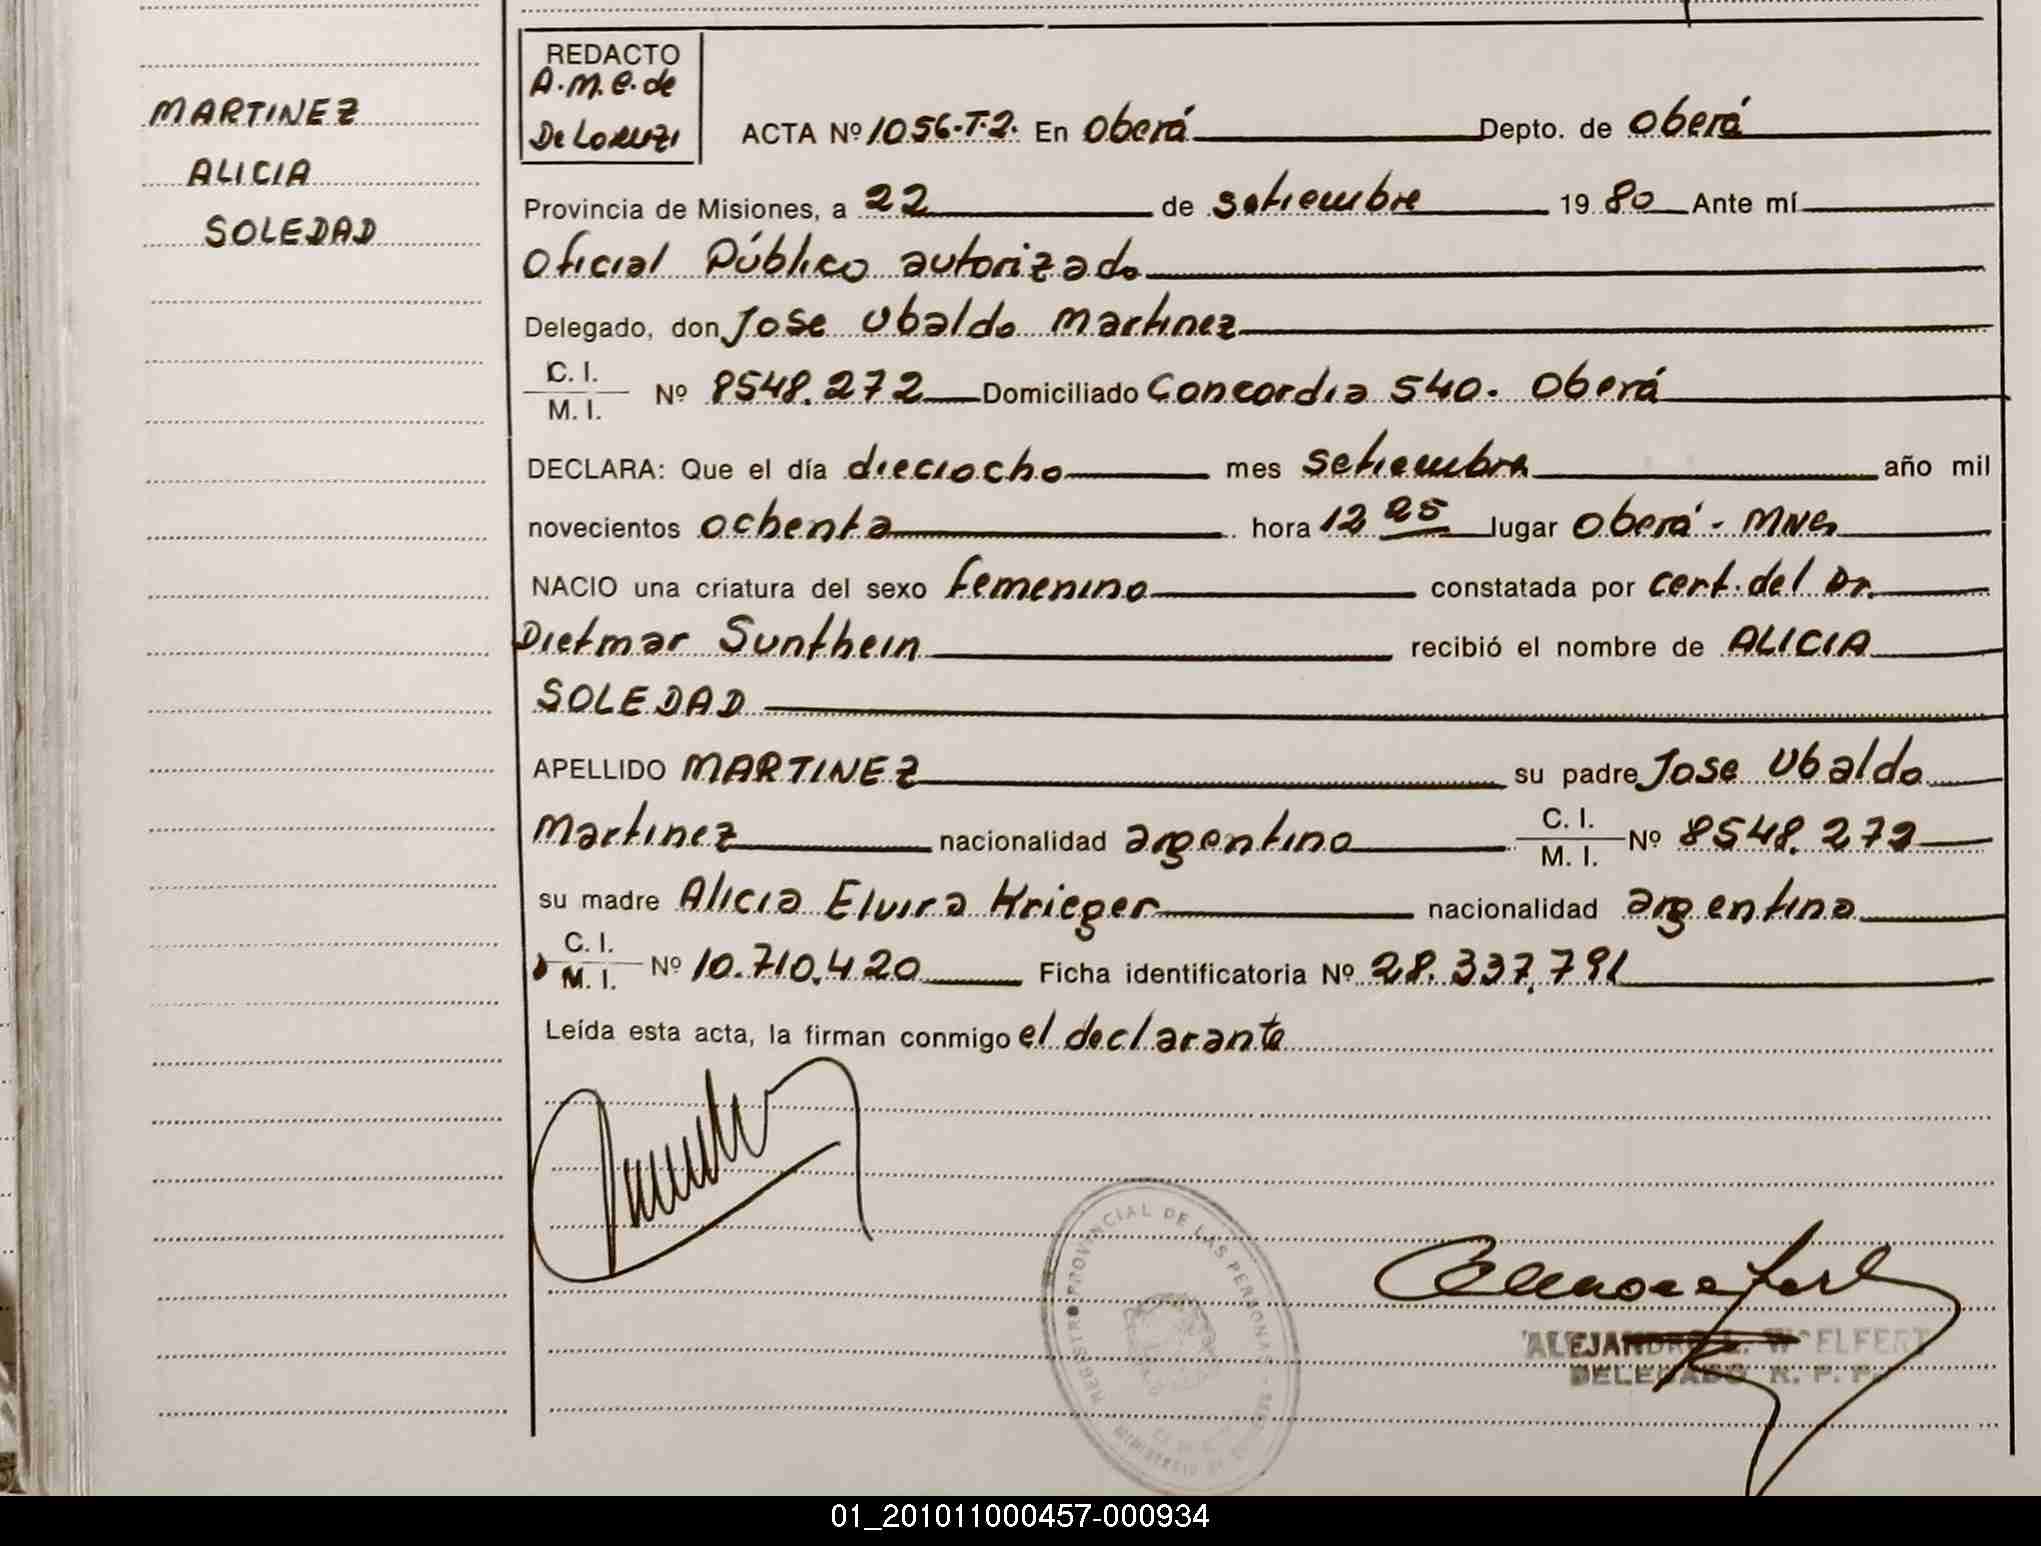 MARTINEZ
ALICIA
SOLEDAD
REDACTO
A.M.E. de
De Loruzi
ACTA Nº 1056.T.2. En Oberá Depto. de Oberá
Provincia de Misiones, a 22 de setiembre 1980 Ante mí
Oficial Público autorizado
Delegado, don Jose Ubaldo Martinez
C. I.
M. I. Nº 8548.272 Domiciliado Concordia 540. Oberá
DECLARA: Que el día dieciocho mes setiembre año mil
novecientos ochenta hora 12 25 lugar Oberá - MNES
NACIO una criatura del sexo femenino constatada por cert. del Dr.
Dietmar Sunthein recibió el nombre de ALICIA
SOLEDAD
APELLIDO MARTINEZ su padre Jose Ubaldo
Martinez nacionalidad argentino C. I. M. I. Nº 8548.272
su madre Alicia Elvira Krieger nacionalidad argentina
C. I.
M. I. Nº 10.710.420 Ficha identificatoria Nº 28.337.791
Leída esta acta, la firman conmigo el declarante
REGISTRO PROVINCIAL DE LAS PERSONAS
MINISTERIO DE
ALEJANDRO L. WOELFERT
DELEGADO R. P. P.
01_201011000457-000934